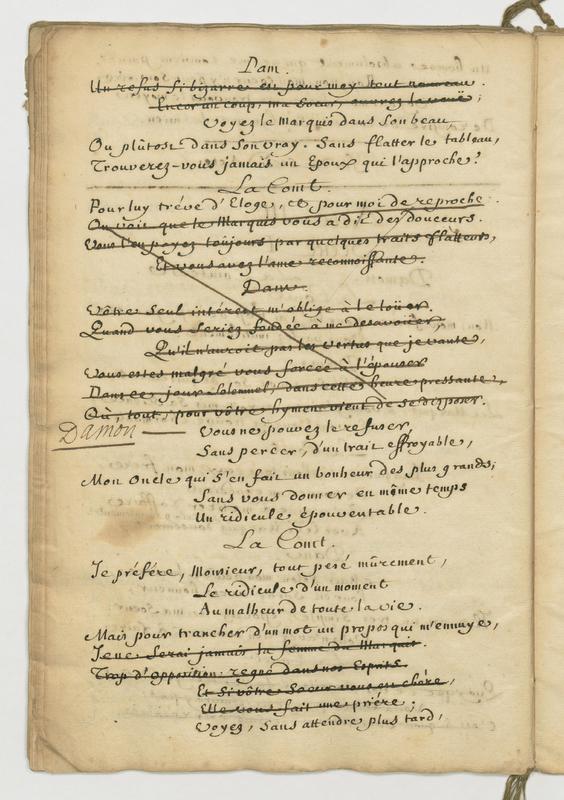 Dam.
Un refus si bizarre est pour moy tout nouveau.
Encor un coup, ma Soeur, ouvrez la vuë;
Voyez le Marquis dans son beau
Ou plûtost dans son vray. Sans flatter le tableau,
Trouverez-vous jamais un Epoux qui l'approche?
La Comt.
Pour luy tréve d'Eloge, et pour moi de reproche.
On voit que le Marquis vous a dit des douceurs.
Vous l'en payez toûjours par quelques traits flatteurs,
Et vous avez l'ame reconnoissante.
Dam.
Vôtre seul intérest m'oblige à le loüer.
Quand vous seriez fondée à me desavoüer,
Qu'il n'auroit pas les vertus que je vante,
Vous estes malgré vous forcée à l'épouser
Dans ce jour solemnel, dans cette heure pressante,
Où, tout, pour vôtre hymen vient de se disposer.
Damon — Vous ne pouvez le refuser,
Sans percer, d'un trait effroyable,
Mon Oncle qui s'en fait un bonheur des plus grands;
Sans vous donner en même temps
Un ridicule épouventable.
La Comt.
Je préfére, Monsieur, tout pesé mûrement,
Le ridicule d'un moment
Au malheur de toute la vie.
Mais pour trancher d'un mot un propos qui m'ennuye,
Je ne serai jamais la femme du Marquis.
Trop d'opposition regne dans nos Esprits.
Et si vôtre Soeur vous est chére,
Elle vous fait une priére;
Voyez, sans attendre plus tard,